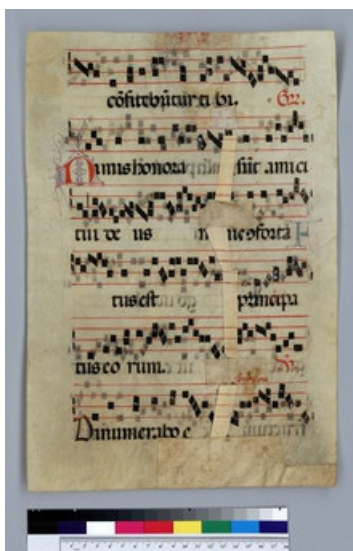 cõfitebũtur ti bi. Gr.
Nimis honora sũt amici
tui de us conforta
tus est principa
tus eo rum. V.
Dinumerabo e